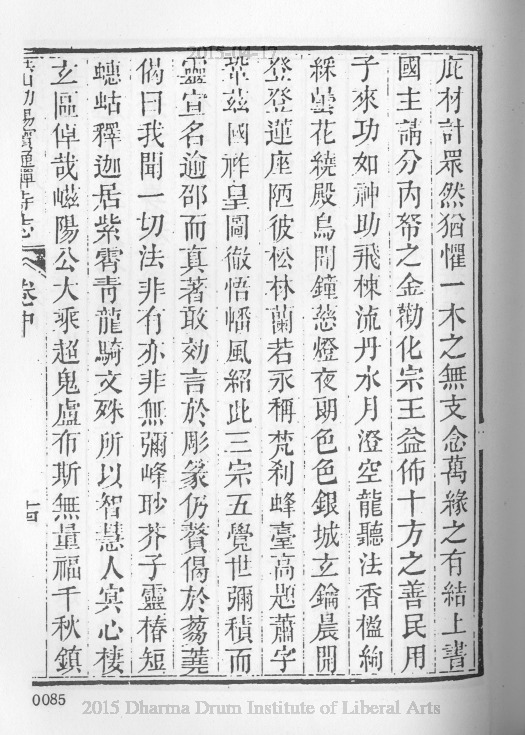 庀材計眾然猶懼一木之無支念萬緣之有結上書
國主請分內帑之金勸化宗王益佈十方之善民用
子來功如神助飛棟流丹水月澄空龍聽法香楹絢
綵曇花繞殿鳥聞鐘慈燈夜朗色色銀城玄鑰晨開
登登蓮座陋彼松林蘭若永稱梵剎蜂臺高題蕭字
鞏茲國祚皇圖徹悟幡風紹此三宗五覺世彌積而
靈宣名逾邵而真著敢効言於彫篆仍贅偈於蒭蕘
偈曰我聞一切法非有亦非無彌峰眇芥子靈椿短
蟪蛄釋迦居紫霄青龍騎文殊所以智慧人寅心棲
玄區倬哉巇陽公大乘超鬼盧布斯無量福千秋鎮
寺志 卷中
十四
0085
2015 Dharma Drum Institute of Liberal Arts
2015-04-17